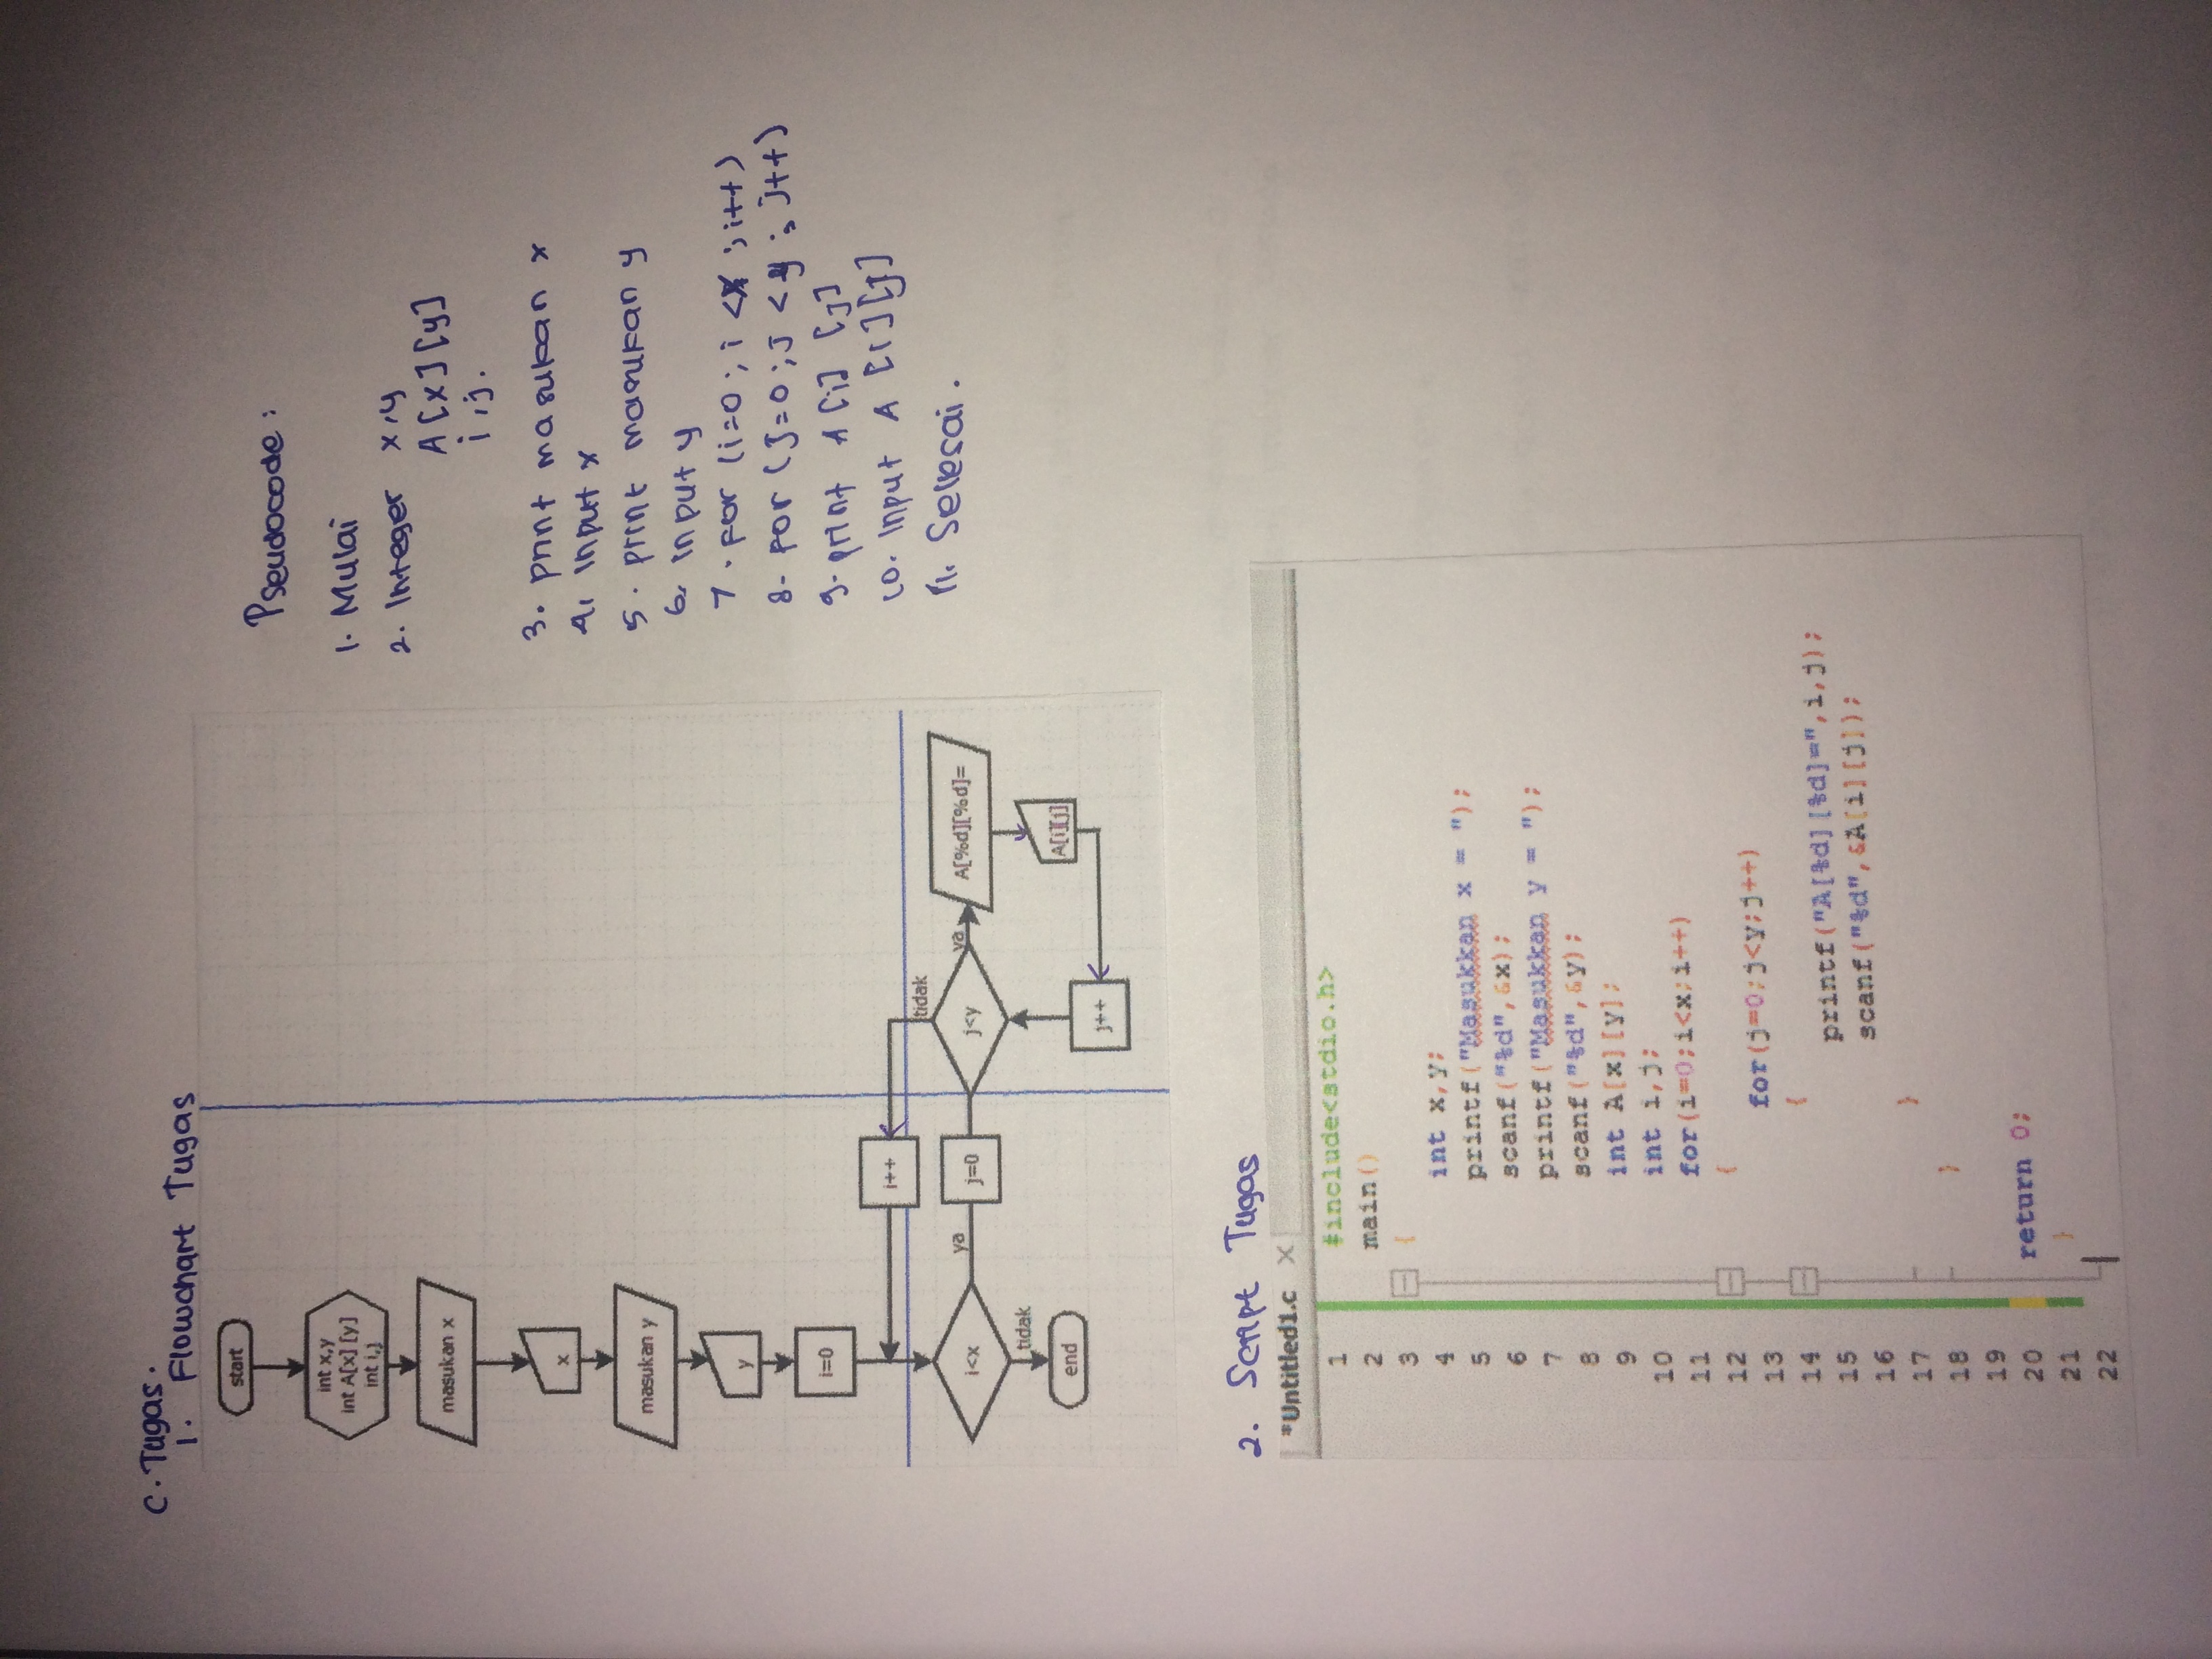 C. Tugas.
1. Flowchart Tugas
start
int x,y
int A[x] [y]
int i,j
masukan x
x
masukan y
y
i=0
i<x
tidak
end
ya
j=0
i++
j<y
tidak
ya
A[%d][%d]=
A[i][j]
j++
Pseudocode :
1. Mulai
2. Integer x,y
A[x][y]
i,j.
3. print masukan x
4. Input x
5. print masukan y
6. Input y
7. For (i=0; i <x ; i++)
8. For (j=0; j <y ; j++)
9. print A [i] [j]
10. Input A [i][j]
11. Selesai.
2. Script Tugas
*Untitled1.c X
1 #include<stdio.h>
2 main()
3 {
4 int x,y;
5 printf("Masukkan x = ");
6 scanf("%d",&x);
7 printf("Masukkan y = ");
8 scanf("%d",&y);
9 int A[x][y];
10 int i,j;
11 for(i=0;i<x;i++)
12 {
13 for(j=0;j<y;j++)
14 {
15 printf("A[%d][%d]=",i,j);
16 scanf("%d",&A[i][j]);
17 }
18 }
19
20 return 0;
21 }
22